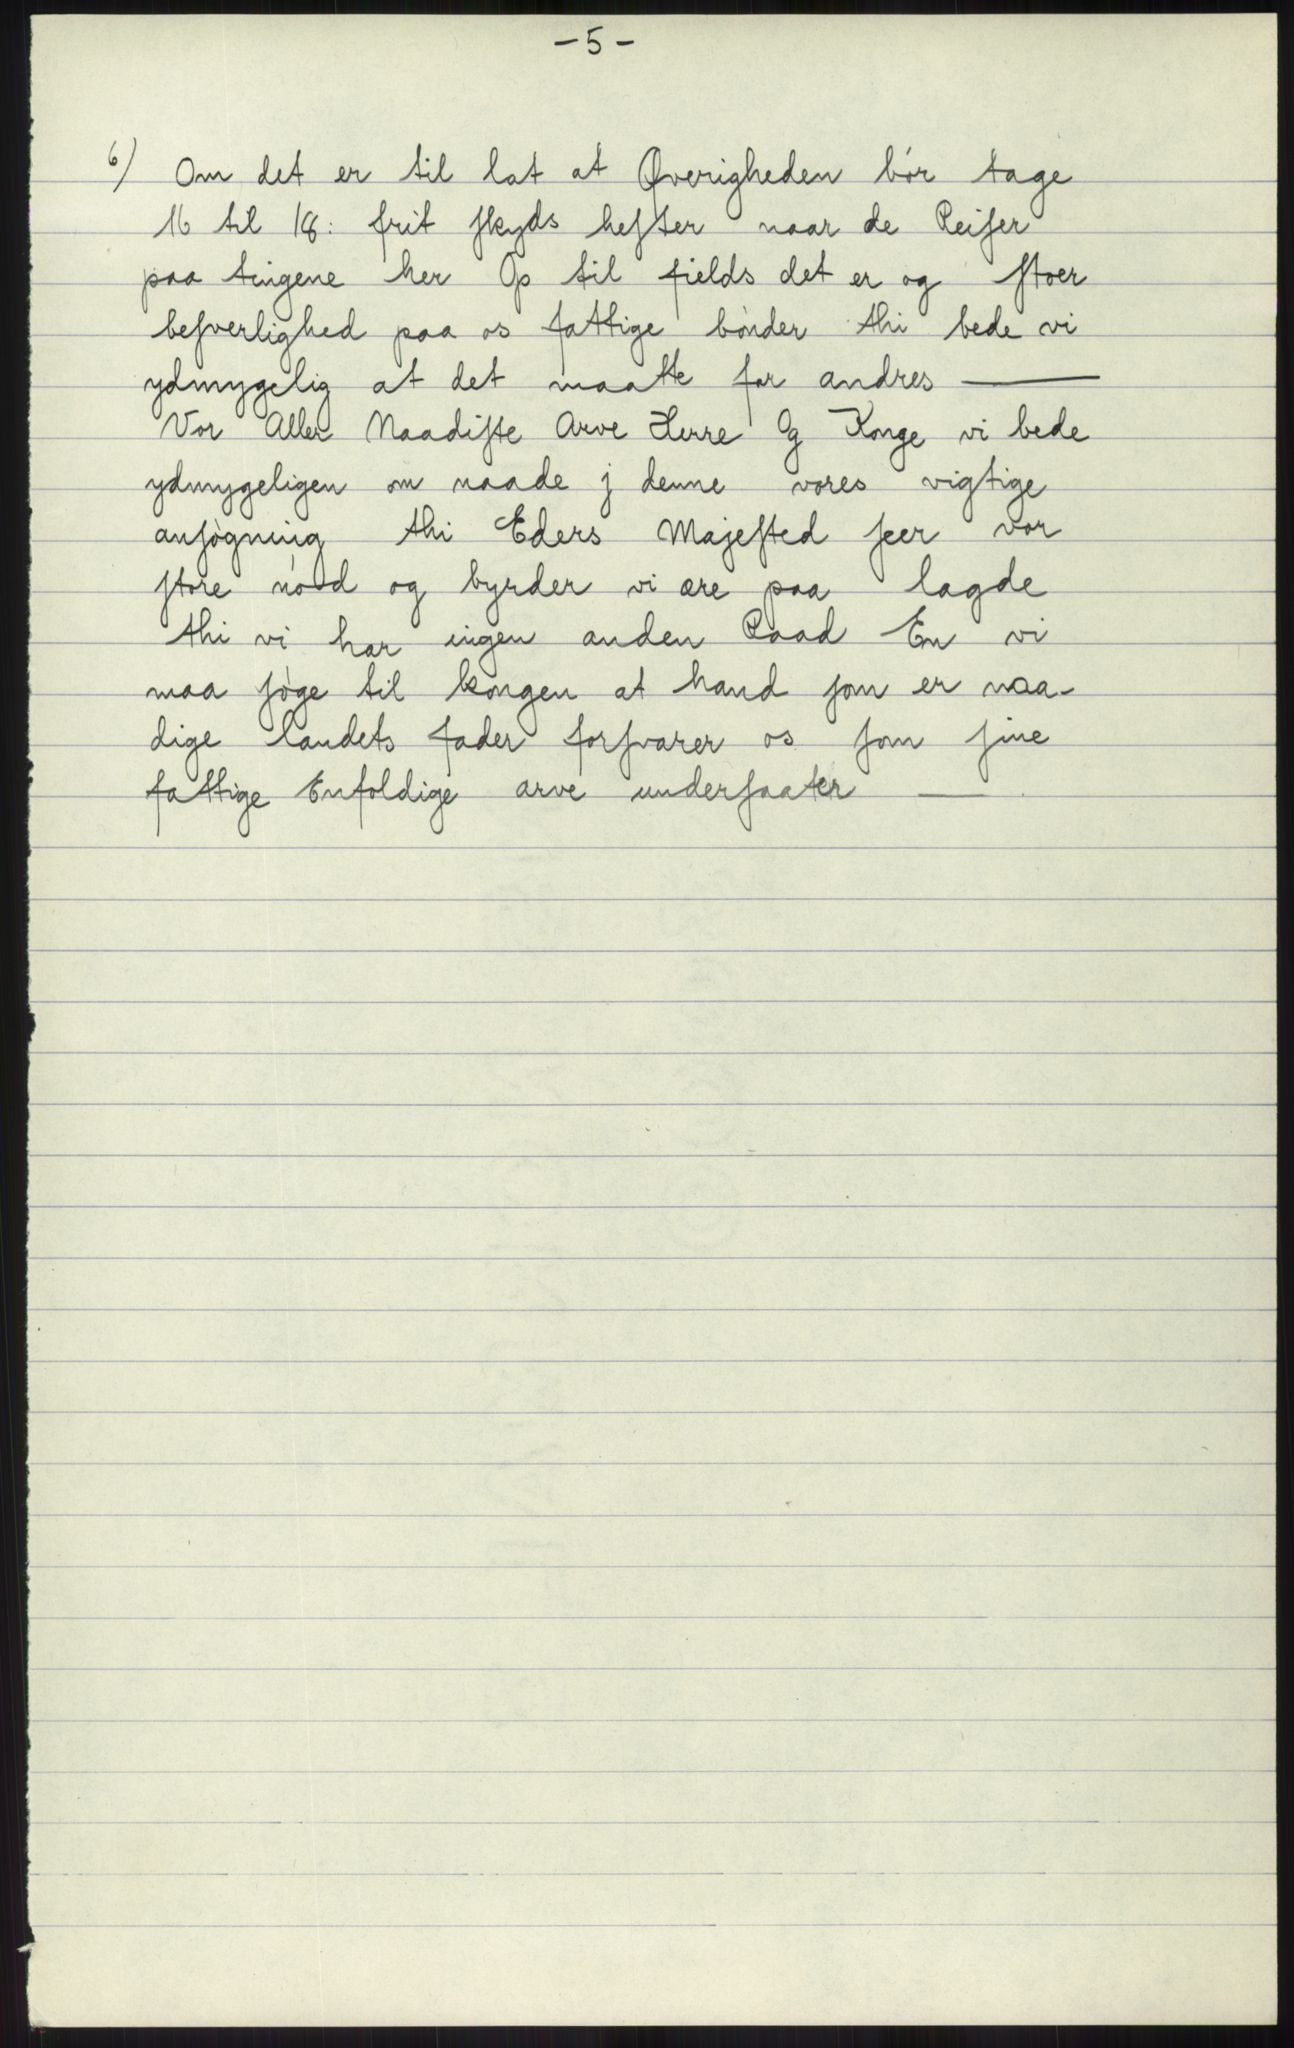 - 5 -
6) Om det er til lat at Øverigheden bör tage
16 til 18: frit ſkyds heſter naar de Reiſer
paa tingene her Op til fields det er og ſtoer
beſverlighed paa os fattige bönder thi bede vi
ydmygelig at det maatte for andres —
Vor Aller Naadiſte Arve Herre Og Konge vi bede
ydmygeligen om naade j denne vores vigtige
anſögning thi Eders Majeſted ſeer vor
ſtore nöd og byrder vi ære paa lagde
thi vi har ingen anden Raad En vi
maa ſöge til kongen at hand ſom er naa-
dige landets fader forſvarer os ſom ſine
fattige Enfoldige arve underſaater —